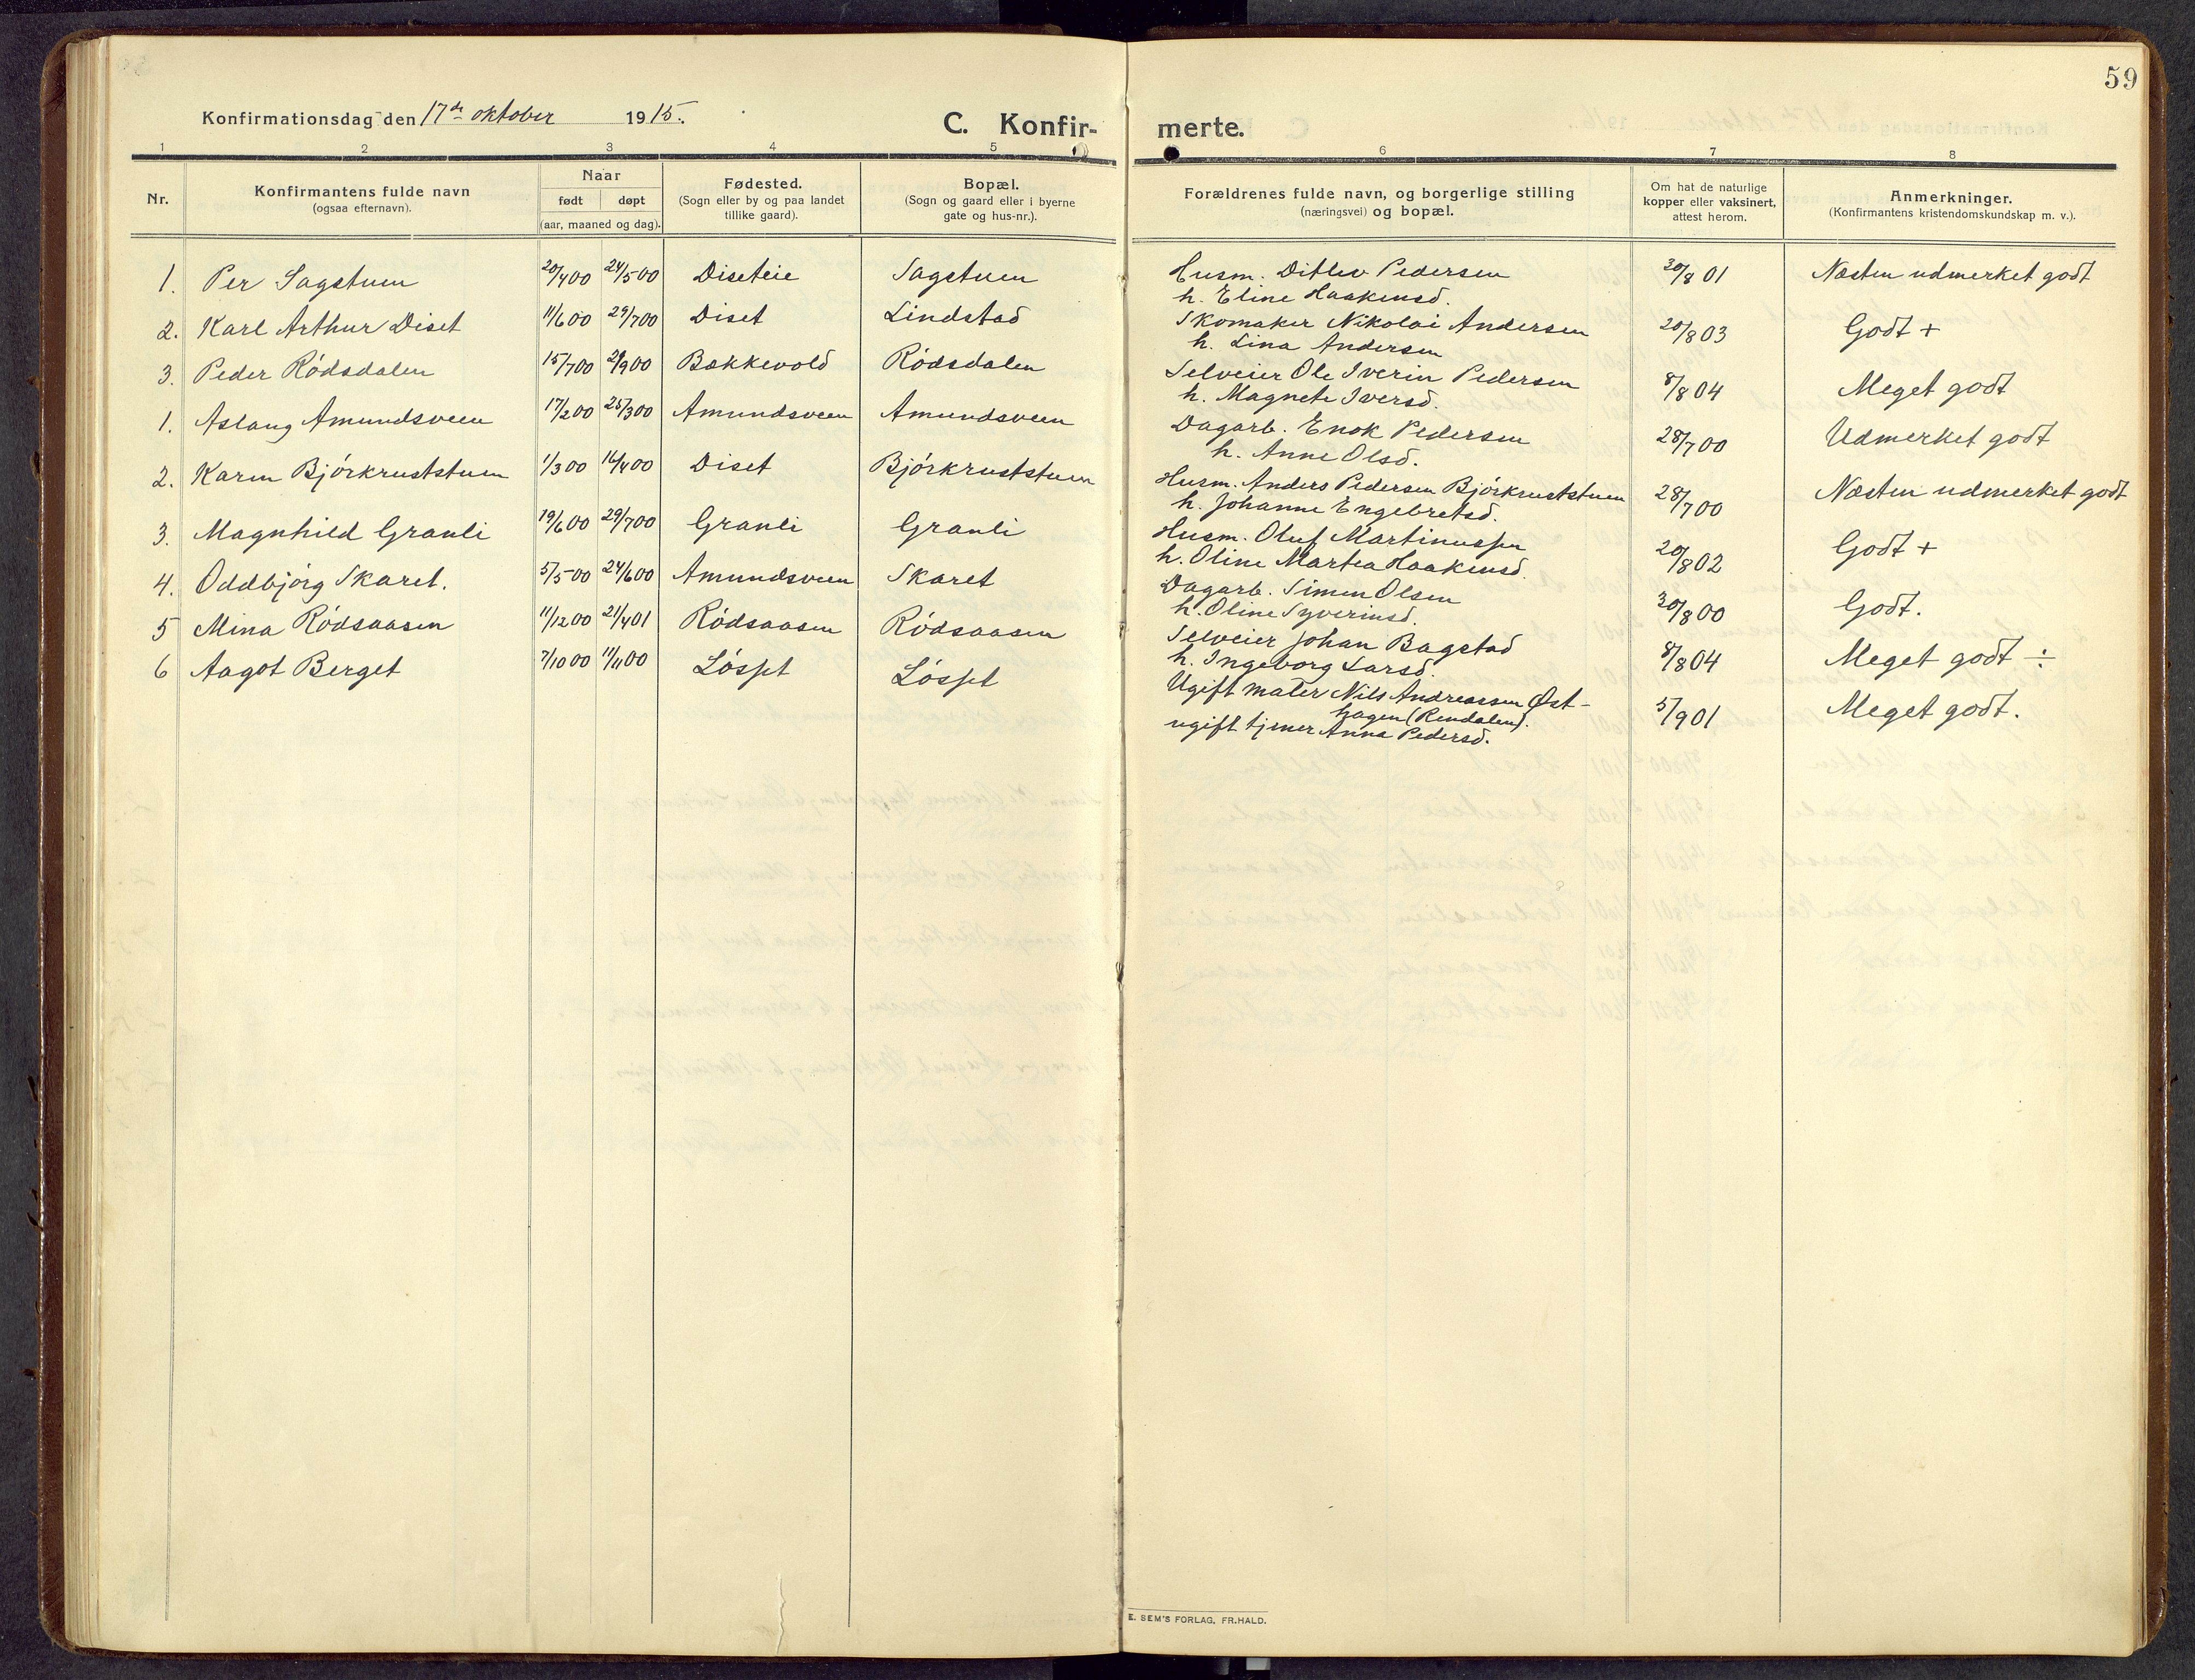 59
Konfirmationsdag den 17de oktober 1915.
C. Konfir- merte.
1 2 3 4 5 6 7 8
Nr.
Konfirmantens fulde navn
(ogsaa efternavn).
Naar
født døpt
(aar, maaned og dag).
Fødested.
(Sogn eller by og paa landet
tillike gaard).
Bopæl.
(Sogn og gaard eller i byerne
gate og hus-nr.).
Forældrenes fulde navn, og borgerlige stilling
(næringsvei) og bopæl.
Om hat de naturlige
kopper eller vaksinert,
attest herom.
Anmerkninger.
(Konfirmantens kristendomskundskap m. v.).
1. Per Sagstuen 20/4 00 24/5 00 Diseteie Sagstuen Husm. Ditlev Pedersen 30/8 01 Næsten udmerket godt
h. Eline Haakensd.
2. Karl Arthur Diset 11/6 00 29/7 00 Diset Lindstad Skomaker Nikolai Andersen 20/8 03 Godt +
h. Lina Andersen
3. Peder Rödsdalen 15/7 00 2/9 00 Bækkevold Rödsdalen Selveier Ole Iverin Pedersen 8/8 04 Meget godt
h. Magnete Iversd.
1. Aslaug Amundsveen 17/2 00 25/3 00 Amundsveen Amundsveen Dagarb. Enok Pedersen 28/7 00 Udmerket godt
h. Anne Olsd.
2. Karen Björkruststuen 1/3 00 16/4 00 Diset Björkruststuen Husm. Anders Pedersen Björkruststuen 28/7 00 Næsten udmerket godt
h. Johanne Engebretsd.
3. Magnhild Granli 19/6 00 29/7 00 Granli Granli Husm. Oluf Martinussen 20/8 02 Godt +
h. Oline Martea Haakensd.
4. Oddbjörg Skaret. 5/5 00 24/6 00 Amundsveen Skaret Dagarb. Simen Olsen 30/8 00 Godt.
h. Oline Syverinsd.
5 Mina Rödsaasen 11/12 00 21/4 01 Rödsaasen Rödsaasen Selveier Johan Bagstad 8/8 04 Meget godt ÷
h. Ingeborg Larsd.
6 Aagot Berget 7/10 00 11/11 00 Lösset Lösset Ugift maler Nils Andreassen Öst- 5/9 01 Meget godt.
hagen (Rendalen).
ugift tjener Anna Pedersd.
E. SEM'S FORLAG, FR.HALD.